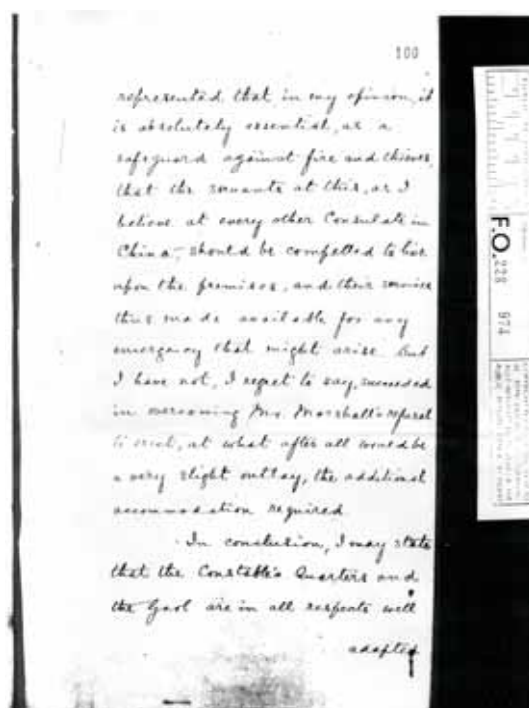 100
represented that in my opinion, it
is absolutely essential, as a
safeguard against fire and thieves,
that the servants at this, as I
believe at every other Consulate in
China, should be compelled to live
upon the premises, and their services
thus made available for any
emergency that might arise. But
I have not, I regret to say, succeeded
in overcoming Mr. Marshall's refusal
to erect, at what after all would be
a very slight outlay, the additional
accommodation required
In conclusion, I may state
that the Constable's Quarters and
the Gaol are in all respects well
adapted
F.O. 228 974